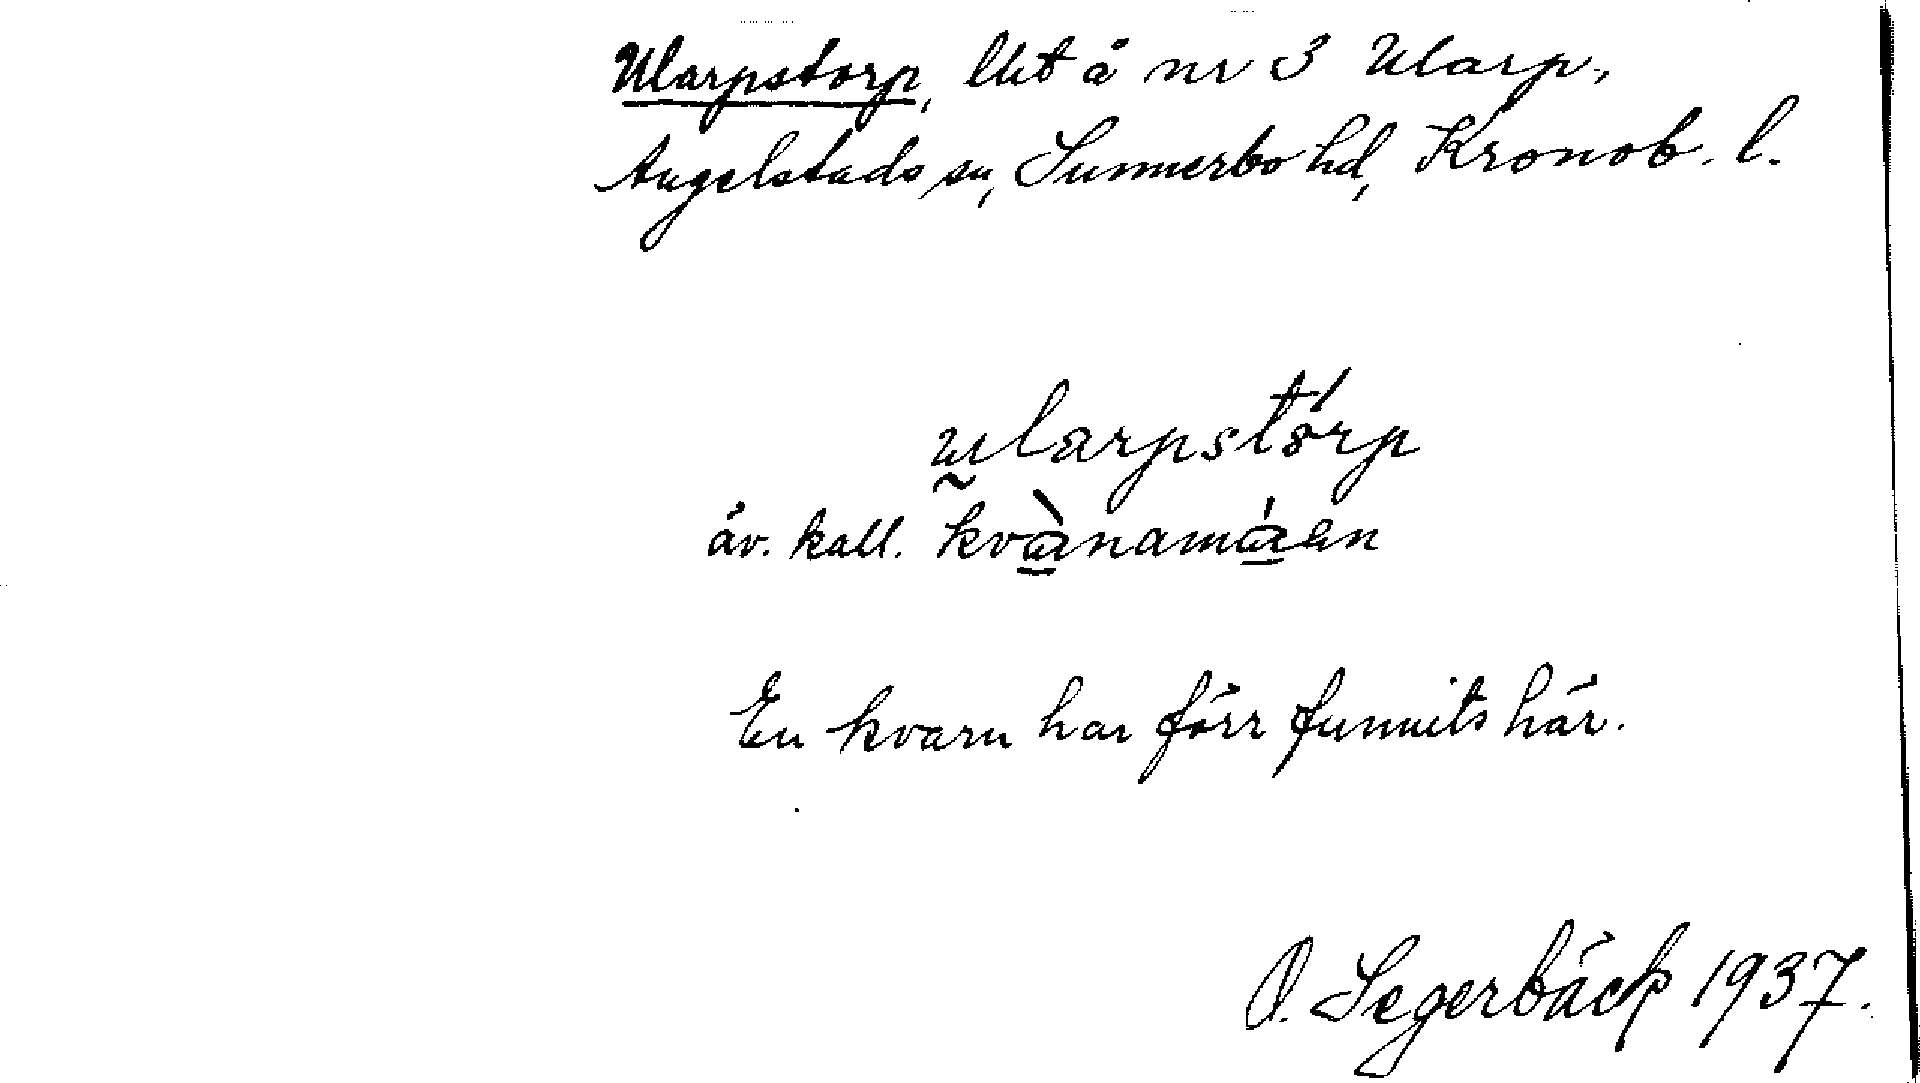 Ularpstorp, lht å nr 3 Ularp,
Angelstads sn, Sunnerbo hd, Kronob. l.
ularpstórp
äv. kall. kvànamáen
En kvarn har förr funnits här.
O. Segerbäck 1937.